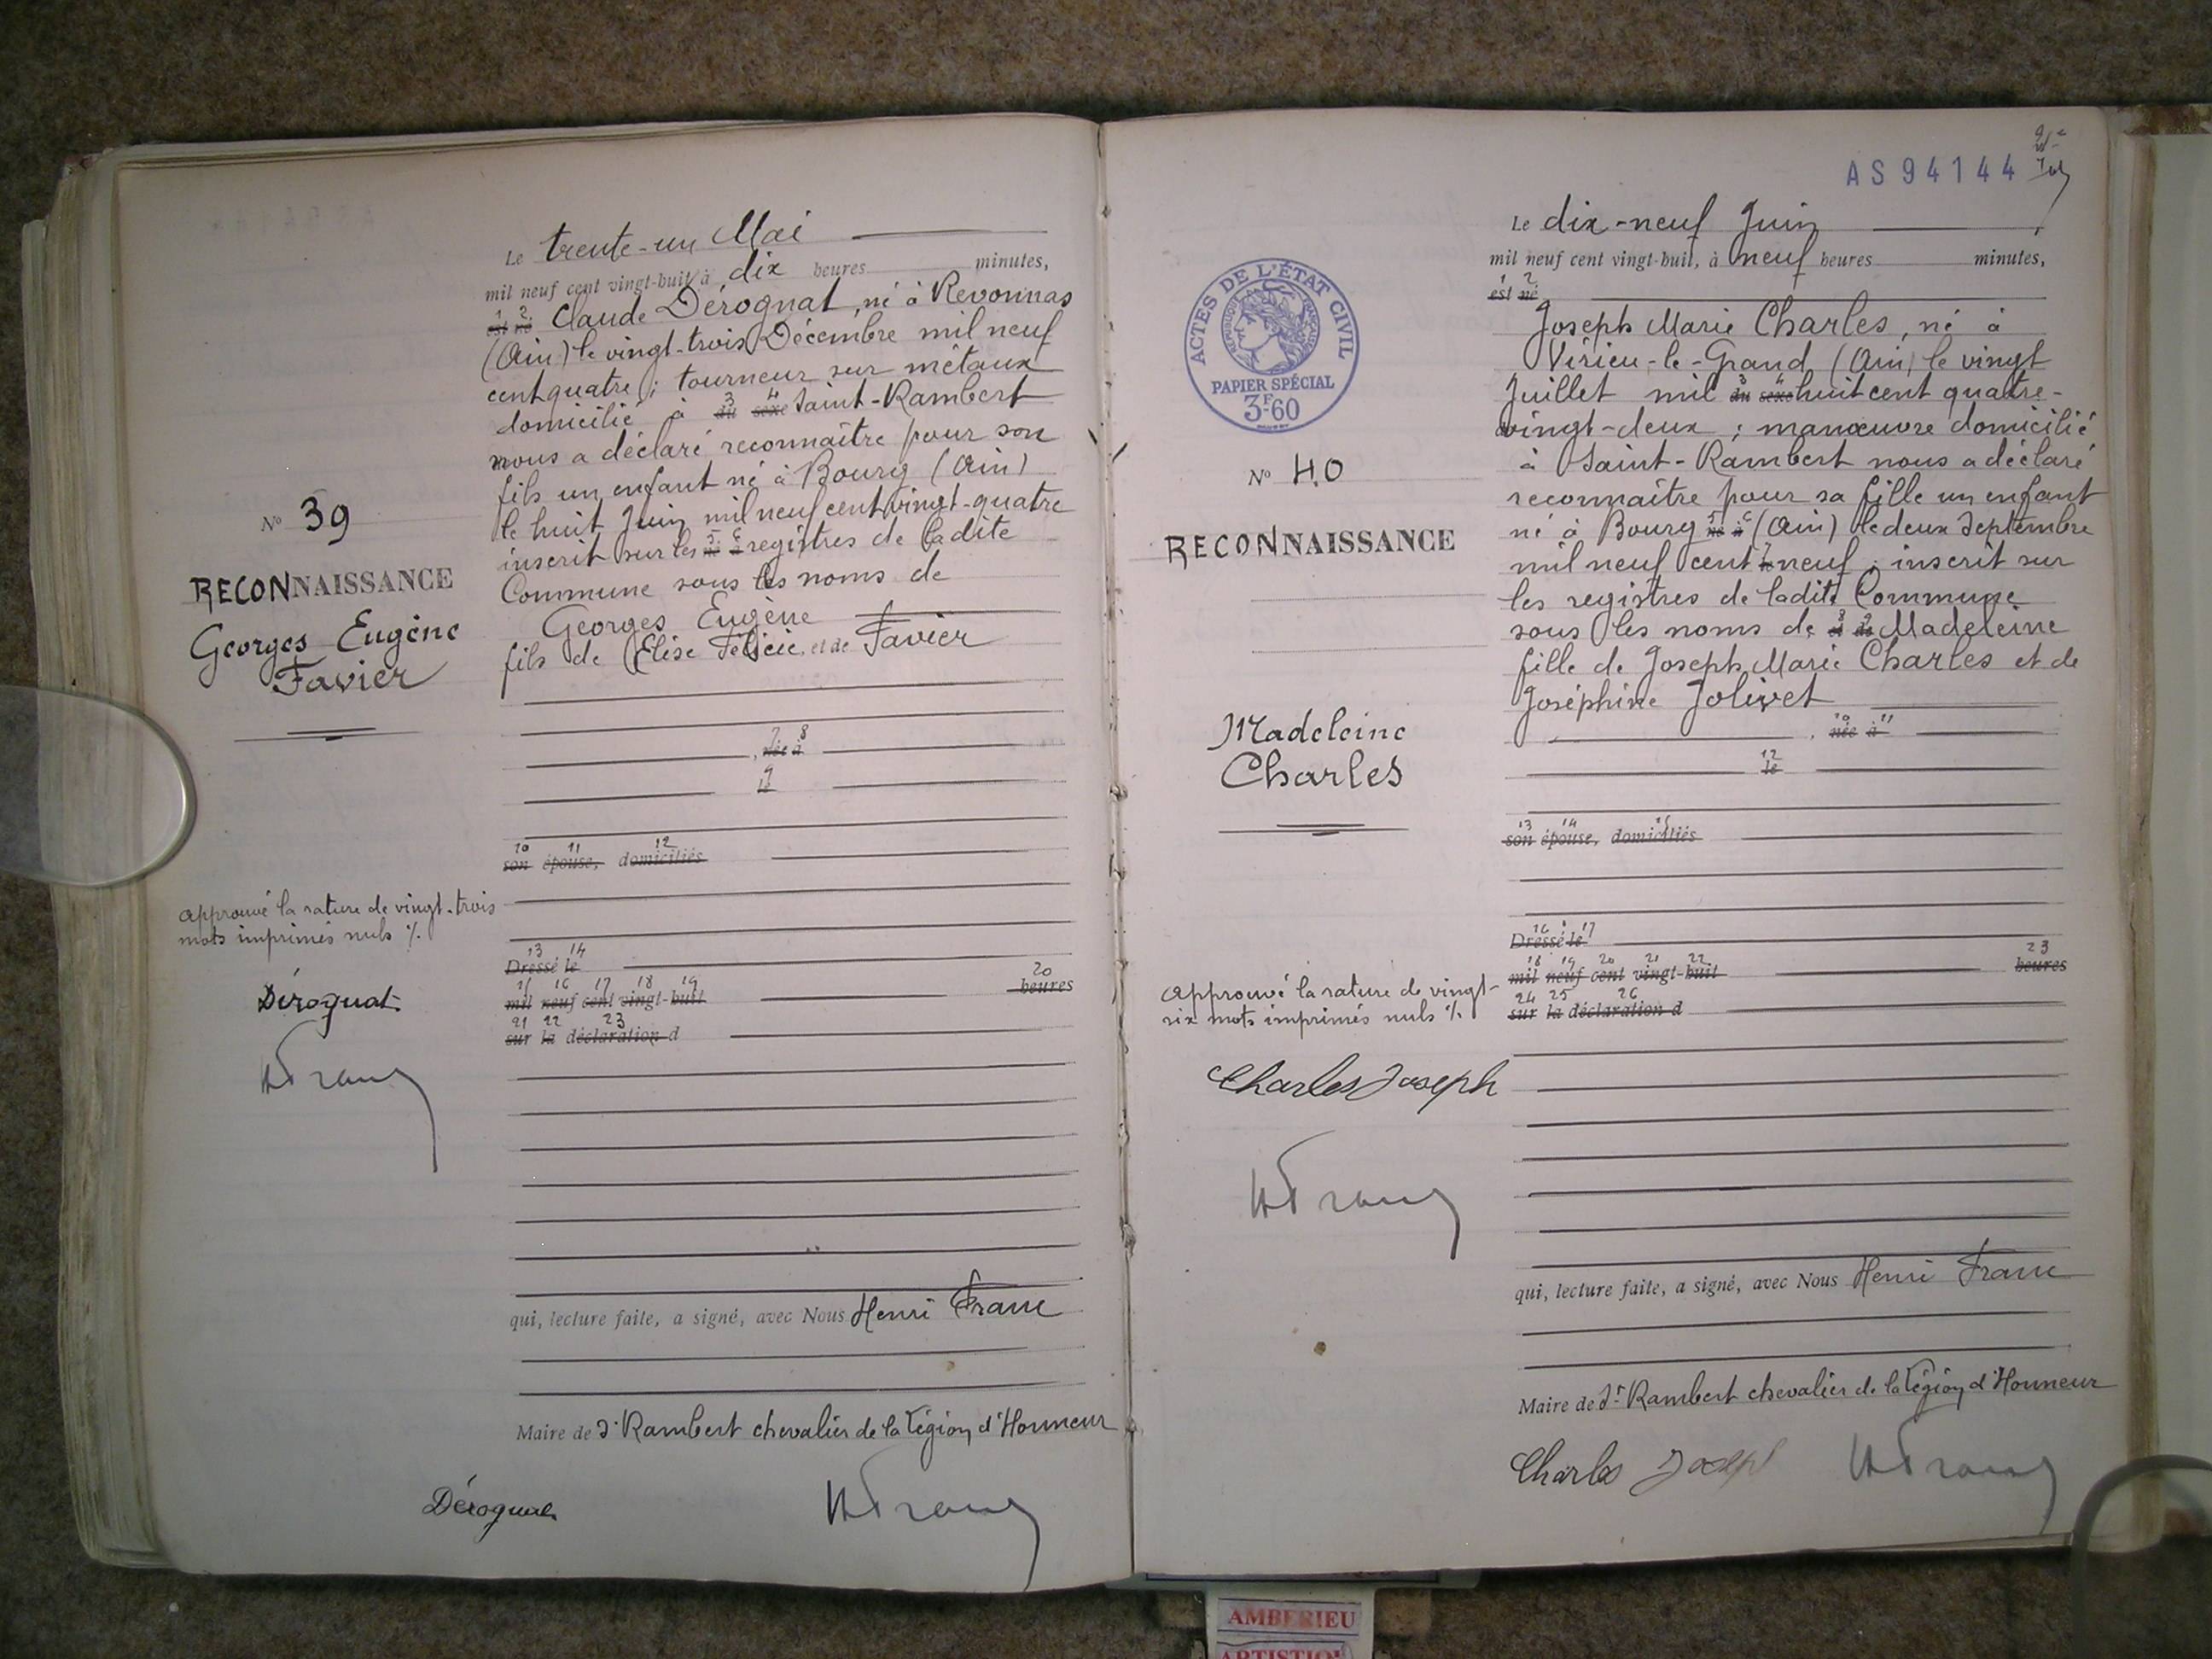 Le trente-un Mai
mil neuf cent vingt-huit à dix heures minutes,
1 2
est né Claude Dérognat, né à Revonnas
(Ain) le vingt-trois Décembre mil neuf
cent quatre ; tourneur sur métaux
3 4
domicilié à du sexe Saint-Rambert
nous a déclaré reconnaître pour son
fils un enfant né à Bourg (Ain)
le huit Juin mil neuf cent vingt-quatre
5 6
inscrit sur les né à registres de ladite
Commune sous les noms de
Georges Eugène
fils de Elise Félicie, et de Favier
No 39
RECONNAISSANCE
Georges Eugène
Favier
7 8
, née à
9
le
10 11 12
son épouse, domiciliés
approuvé la rature de vingt-trois
mots imprimés nuls %.
Dérognat
HFranc
13 14
Dressé le
15 16 17 18 19 20
mil neuf cent vingt-huit heures
21 22 23
sur la déclaration d
qui, lecture faite, a signé, avec Nous Henri Franc
Maire de St Rambert chevalier de la Légion d'Honneur
Dérognat HFranc
AS94144
ACTES DE L'ÉTAT CIVIL
RÉPUBLIQUE FRANÇAISE
PAPIER SPÉCIAL
3F60
No 40
RECONNAISSANCE
Madeleine
Charles
Le dix-neuf Juin
mil neuf cent vingt-huit, à neuf heures minutes,
1 2
est né
Joseph Marie Charles, né à
Virieu-le-Grand (Ain) le vingt
3 4
Juillet mil du sexe huit cent quatre-
vingt-deux ; manœuvre domicilié
à Saint-Rambert nous a déclaré
reconnaître pour sa fille un enfant
5 6
né à Bourg né à (Ain) le deux Septembre
7
mil neuf cent le neuf ; inscrit sur
les registres de ladite Commune
8 9
sous les noms de et de Madeleine
fille de Joseph Marie Charles et de
Joséphine Jolivet
10 11
, née à
12
le
13 14 15
son épouse, domiciliés
16 17
Dressé le
18 19 20 21 22 23
mil neuf cent vingt-huit heures
24 25 26
sur la déclaration d
approuvé la rature de vingt-
six mots imprimés nuls %.
Charles Joseph
HFranc
qui, lecture faite, a signé, avec Nous Henri Franc
Maire de St Rambert chevalier de la Légion d'Honneur
Charles Joseph HFranc
AMBERIEU